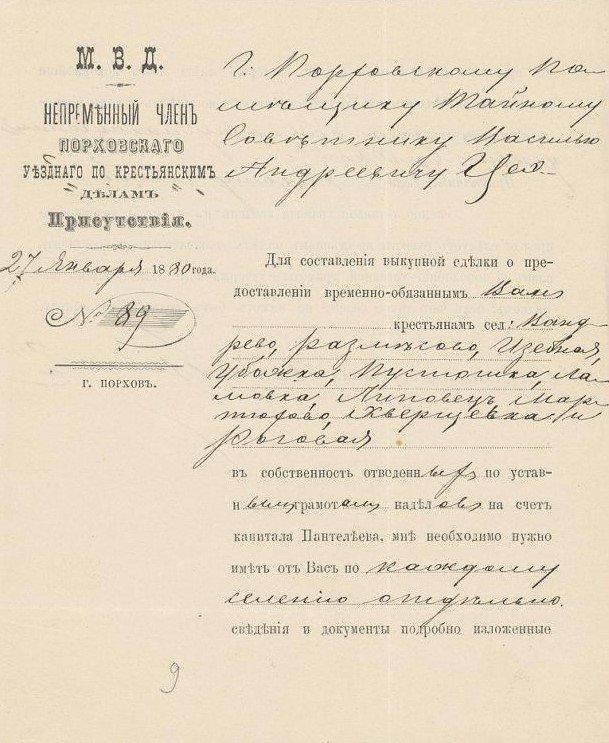 М. В. Д.
НЕПРЕМѢННЫЙ ЧЛЕНЪ
ПОРХОВСКАГО
УѢЗДНАГО ПО КРЕСТЬЯНСКИМЪ
ДѢЛАМЪ
Присутствія.
27 Января 1880 года.
№ 89
Г. ПОРХОВЪ.
Г. Порховскому По-
мѣщику Тайному
Совѣтнику Василью
Андреевичу Цеэ.
Для составленія выкупной сдѣлки о пре-
доставленіи временно-обязаннымъ Вамъ
крестьянамъ сел:
рево, Изебная,
Пустошка, Ла-
мовка, Липовецъ, Мар-
и
Роговая
въ собственность отведенныхъ по устав-
нымъ грамотамъ надѣловъ на счетъ
капитала Пантелѣева, мнѣ необходимо нужно
имѣть отъ Васъ по каждому
селенію отдѣльно.
свѣдѣнія и документы подробно изложенные
9